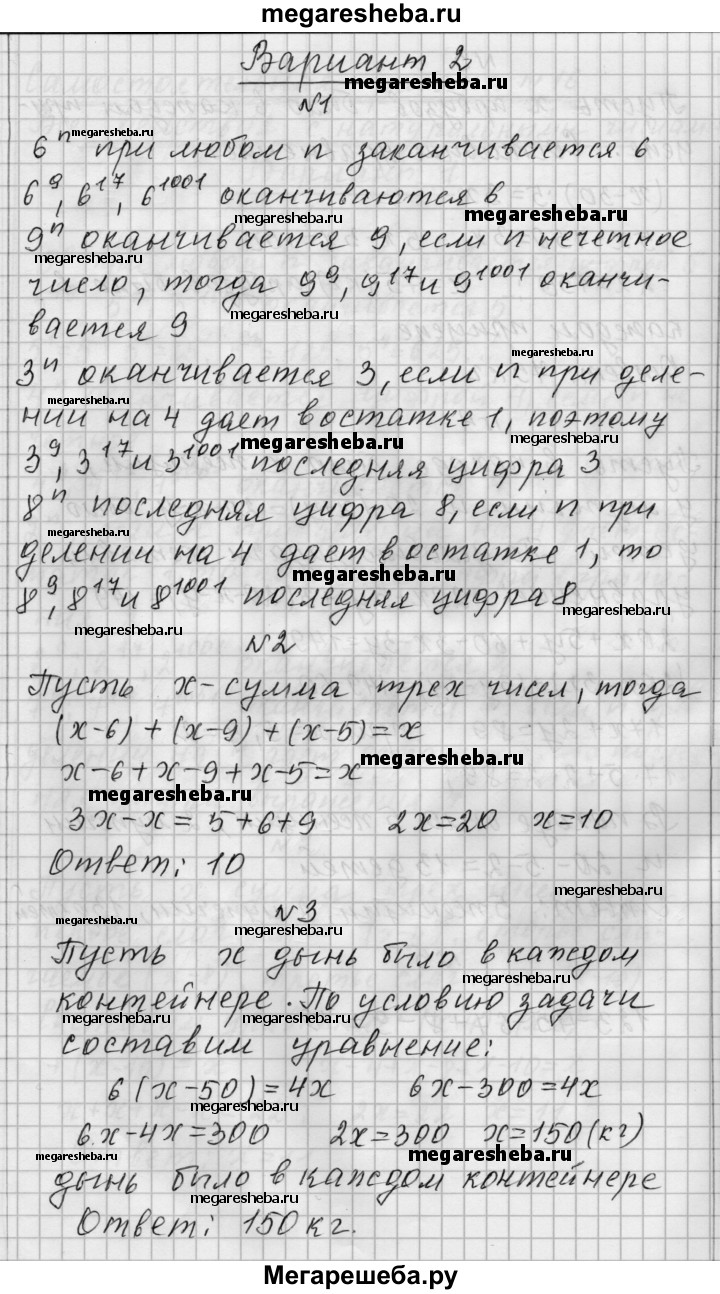 megaresheba.ru
Вариант 2
megaresheba.ru
№1
megaresheba.ru
6ⁿ при любом n заканчивается 6
6⁹, 6¹⁷, 6¹⁰⁰¹ оканчиваются 6
megaresheba.ru megaresheba.ru
9ⁿ оканчивается 9, если n нечетное
megaresheba.ru
число, тогда 9⁹, 9¹⁷ и 9¹⁰⁰¹ оканчи-
megaresheba.ru
вается 9
megaresheba.ru
3ⁿ оканчивается 3, если n при деле-
megaresheba.ru
нии на 4 дает в остатке 1, поэтому
megaresheba.ru megaresheba.ru
3⁹, 3¹⁷ и 3¹⁰⁰¹ последняя цифра 3
8ⁿ последняя цифра 8, если n при
megaresheba.ru megaresheba.ru
делении на 4 дает в остатке 1, то
megaresheba.ru
8⁹, 8¹⁷ и 8¹⁰⁰¹ последняя цифра 8
megaresheba.ru
megaresheba.ru
№2
Пусть x - сумма трех чисел, тогда
(x-6) + (x-9) + (x-5) = x
megaresheba.ru
x-6+x-9+x-5=x
megaresheba.ru
3x-x= 5+6+9 2x=20 x=10
Ответ: 10
megaresheba.ru
№3
megaresheba.ru
megaresheba.ru
Пусть x дынь было в каждом
megaresheba.ru
контейнере. По условию задачи
megaresheba.ru megaresheba.ru megaresheba.ru
составим уравнение:
6(x-50)=4x 6x-300=4x
megaresheba.ru
6x-4x=300 2x=300 x=150(кг)
megaresheba.ru megaresheba.ru
дынь было в каждом контейнере
megaresheba.ru
Ответ: 150кг.
megaresheba.ru
Мегарешеба.ру